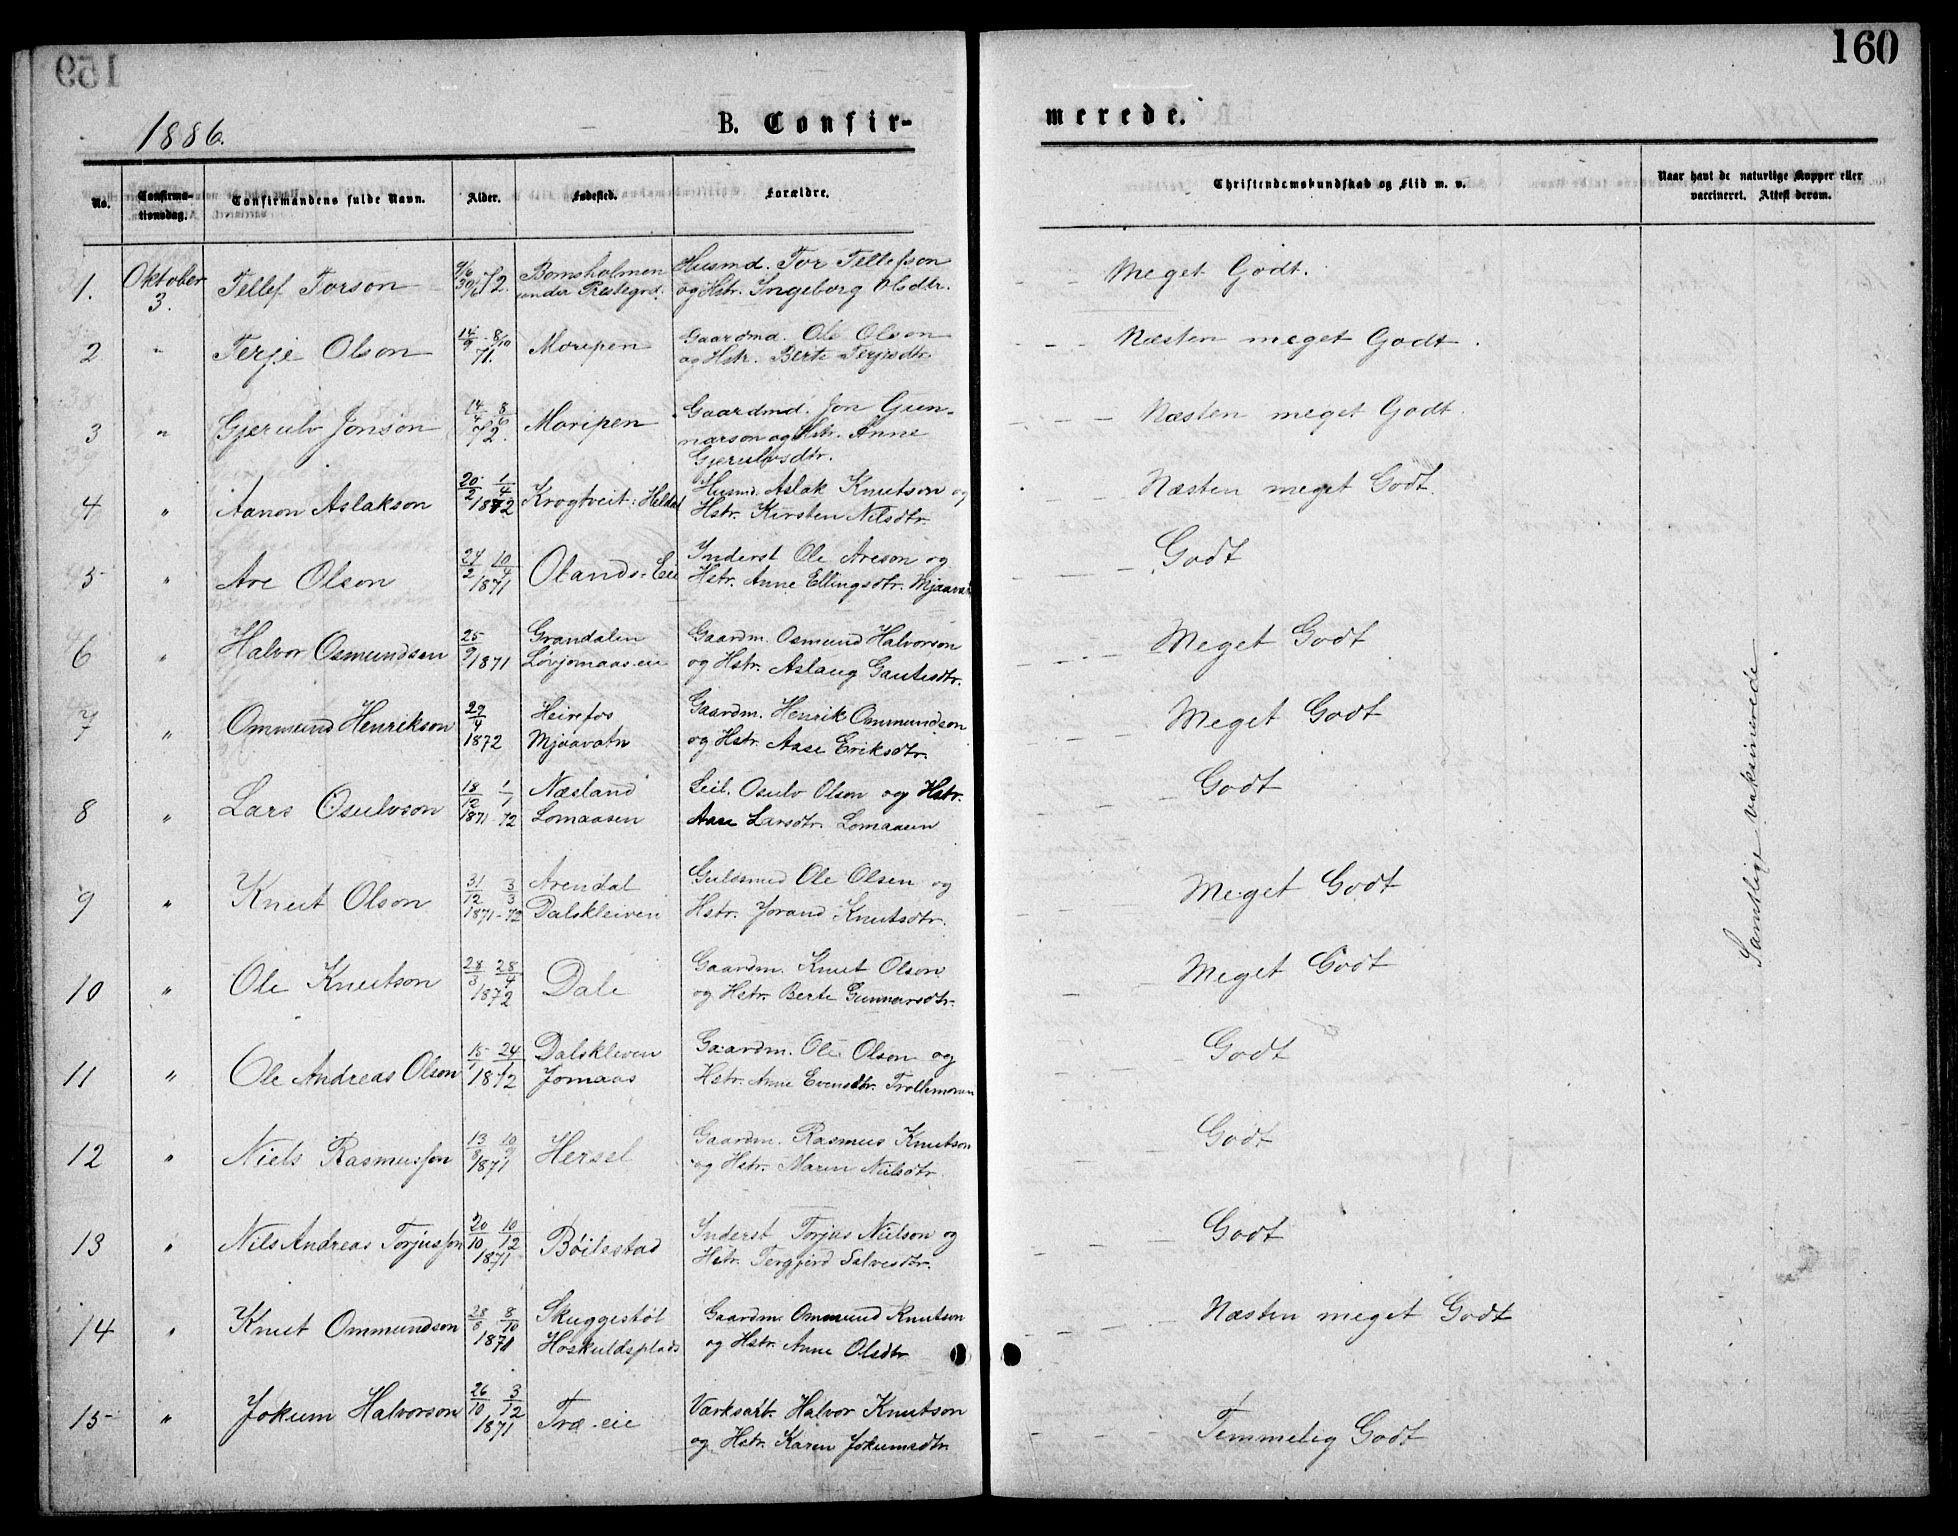 159
160
1886.
B. Confir-
merede.
No.
Confirma-
tionsdag.
Confirmandens fulde Navn.
Alder.
Fødested.
Forældre.
Christendomskundskab og Flid m. v.
Naar havt de naturlige Kopper eller
vaccineret. Attest derom.
1. Oktober 3. Tellef Torson 72. Bomsholmen under Prestegrd.
Husmd. Tor Tellefson
og Hstr. Ingeborg Olsdtr.
Meget Godt.
2 " Terje Olson 14/9 - 8/10 71. Moripen
Gaardmd. Ole Olson
og Hstr. Berte Terjesdtr
- - - Næsten meget Godt.
3 " Gjerulv Jonson 14/4 8/6 72. Moripen
Gaardmd. Jon Gun-
narson og Hstr. Anne
Gjerulvsdtr.
- - - Næsten meget Godt.
4 " Aanon Aslakson 20/2 - 1/4 1872 Krogtveit: Heldal
Husmd. Aslak Knutson og
Hstr. Kirsten Nilsdtr.
Næsten meget Godt.
5 " Are Olson 24/2 10/4 1871 Olands-Eie
Inderst Ole Areson og
Hstr. Anne Ellingsdtr.
- - - Godt
6 " Halvor Osmundsen 25/9 1871 Grandalen
Løvjomaas-eie
Gaardm. Osmund Halvorson
og Hstr. Aslaug Gautesdtr.
- - - Meget Godt
7 " Ommund Henrikson 29/4 1872 Heirefos
Mjaavatn
Gaardm. Henrik Ommundson
og Hstr. Aase Eriksdtr.
- - - Meget Godt
8 " Lars Osulvson 18/12 1/1 1871-72 Næsland
Lomaasen
Leil. Osulv Olson og Hstr.
Aase Larsdtr. Lomaasen
- - - Godt
9 " Knut Olson 31/12 3/3 1871-72 Arendal
Dalskleiven
Guldsmed Ole Olsen og
Hstr. Jorand Knutsdtr.
- - - Meget Godt
10 " Ole Knutson 28/3 28/4 1872 Dale
Gaardm. Knut Olson
og Hstr. Berte Gunnarsdtr.
- - - Meget Godt
11 " Ole Andreas Olson 1872 Dalskleven
Jomaas
Gaardm. Ole Olson og
Hstr. Anne Evensdtr.
- - - Godt
12 " Niels Rasmusson 13/8 10/9 1871 Hersel
Gaardm. Rasmus Knutson
og Hstr. Maren Nielsdtr.
- - - Godt
13 " Nils Andreas Torjusson 20/10 10/12 1871 Bøilestad
Inderst Torjus Nielson og
Hstr. Tergjerd Salvesdtr.
- - - Godt
14 " Knut Ommundson 28/8 8/10 1871 Skuggestøl
Høskuldsplads
Gaardm. Ommund Knutson
og Hstr. Anne Olsdtr
- - - Næsten meget Godt
15 " Jokum Halvorson 26/10 3/12 1871 Træ-eie
Værksarb. Halvor Knutson
og Hstr. Karen Jokumsdtr.
- - - Temmelig Godt
Samtlige vaksinerede.